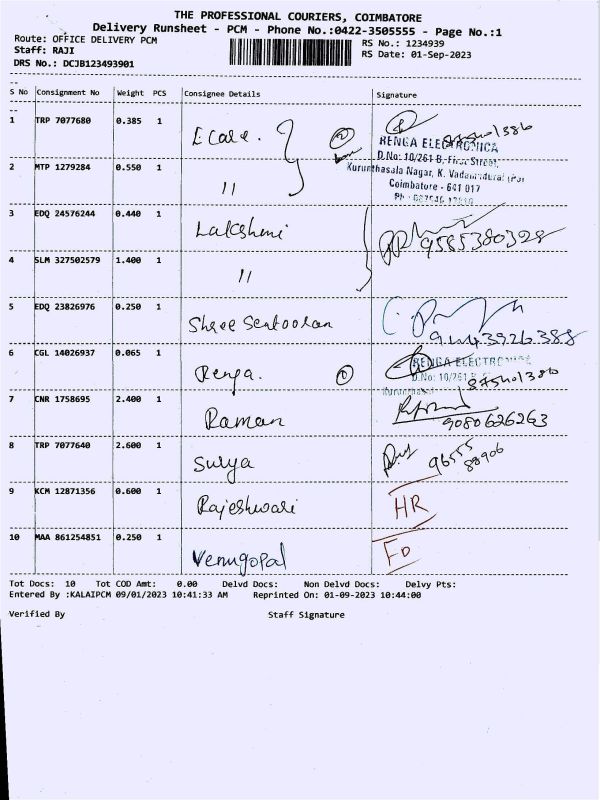 THE PROFESSIONAL COURIERS, COIMBATORE
Delivery Runsheet - PCM - Phone No.:0422-3505555 - Page No.:1
Route: OFFICE DELIVERY PCM RS No.: 1234939
Staff: RAJI RS Date: 01-Sep-2023
DRS No.: DCJB123493901
S No Consignment No Weight PCS Consignee Details Signature
1 TRP 7077680 0.385 1 Ecare.
RENGA ELECTRONICA
D.No: 10/261 B, First Street,
2 MTP 1279284 0.550 1 "
Kurunthasala Nagar, K. Vadamadurai (Po)
Coimbatore - 641 017
3 EDQ 24576244 0.440 1 Lakshmi 9585380328
4 SLM 327502579 1.400 1 "
5 EDQ 23826976 0.250 1 Shree Sentooran
6 CGL 14026937 0.065 1 Renga.
RENGA ELECTRONICA
D.No: 10/261
7 CNR 1758695 2.400 1 Raman 9080626263
8 TRP 7077640 2.600 1 Surya 96555 88906
9 KCM 12871356 0.600 1 Rajeshwari HR
10 MAA 861254851 0.250 1 Venugopal FD
Tot Docs: 10 Tot COD Amt: 0.00 Delvd Docs: Non Delvd Docs: Delvy Pts:
Entered By :KALAIPCM 09/01/2023 10:41:33 AM Reprinted On: 01-09-2023 10:44:00
Verified By Staff Signature